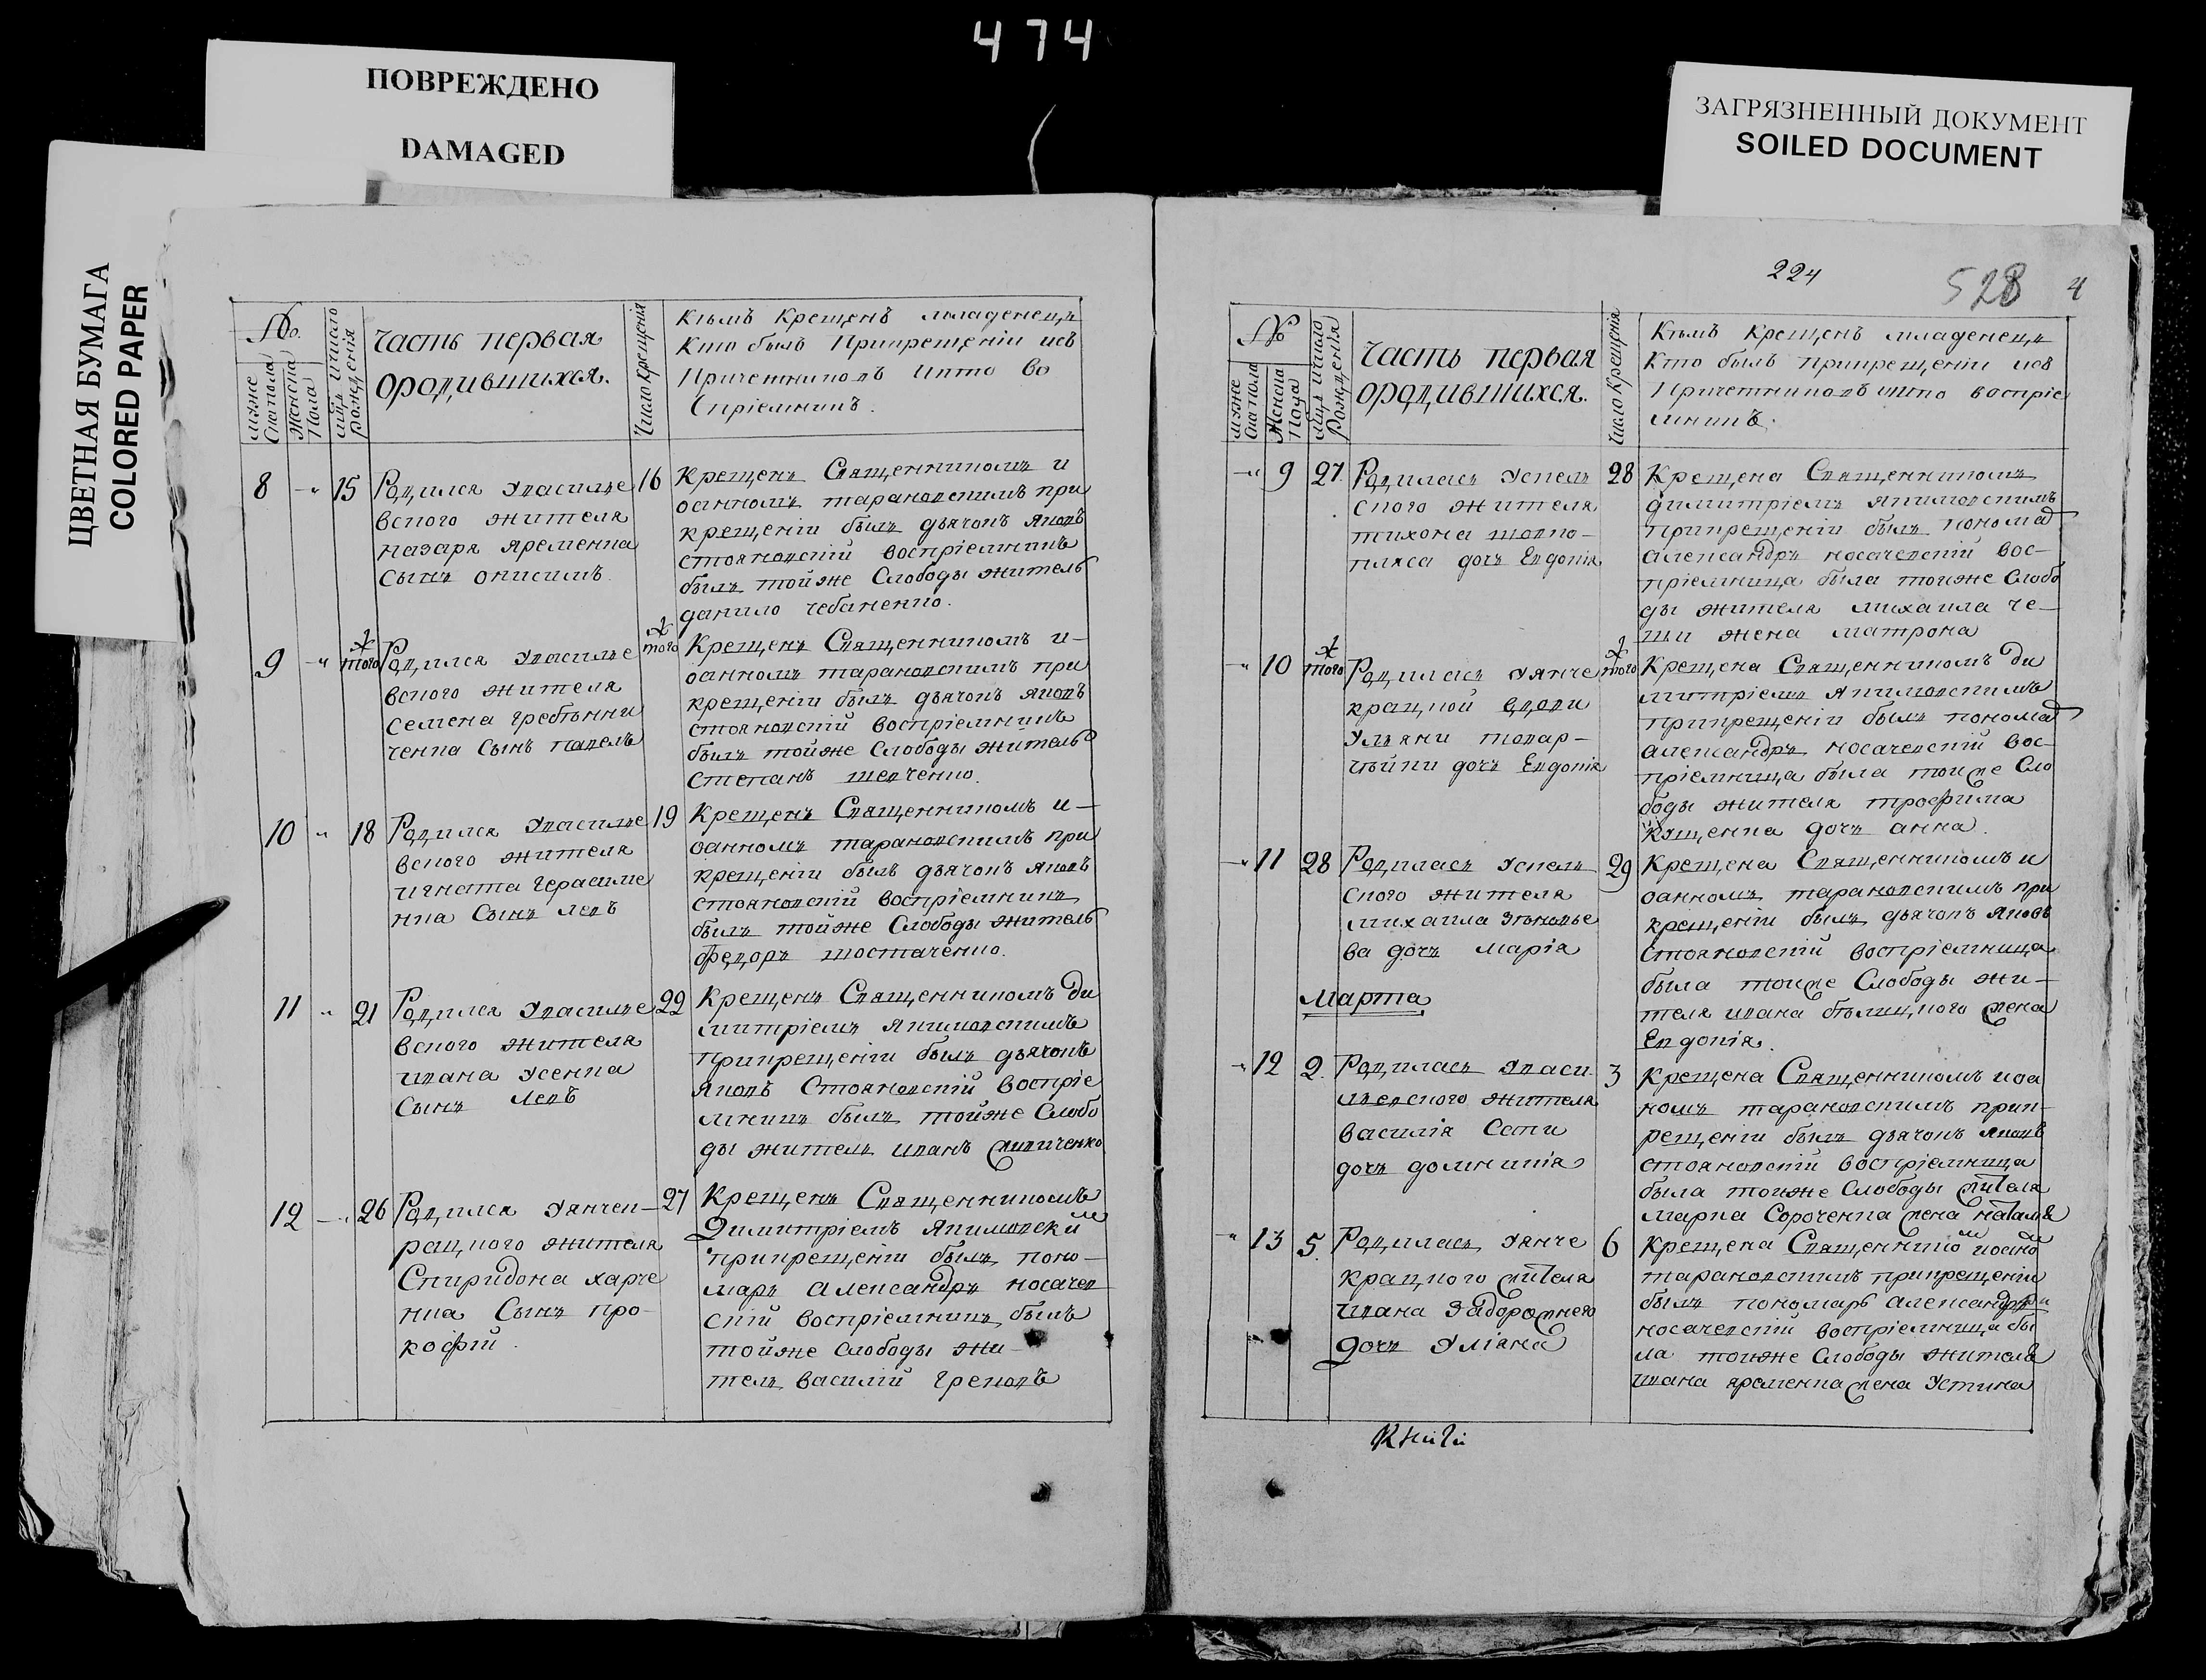 474
ПОВРЕЖДЕНО
DAMAGED
ЦВЕТНАЯ БУМАГА
COLORED PAPER
ЗАГРЯЗНЕННЫЙ ДОКУМЕНТ
SOILED DOCUMENT
№.
муже
ска пола
Женска
Пола
мцъ и число
рожденія
часть первая
ородившихся.
Число крещенія
Кѣмъ крещенъ младенецъ
Кто былъ Прикрещеніи изъ
Причетниковъ Икто во
спріемникъ.
8 15 Родился Увасилье
вского жителя
назара яременка
сынъ онисимъ
16 Крещенъ Священникомъ и
оанномъ тарановскимъ при
крещеніи былъ дьячокъ яковъ
стояновскій воспріемникъ
былъ тойже Слободы житель
данило чебаненко.
9 того Родился Увасилье
вского жителя
семена гребѣнни
ченка Сынъ павелъ
того Крещенъ Священникомъ и-
оанномъ тарановскимъ при
крещеніи былъ дьячокъ яковъ
стояновскій воспріемникъ
былъ тойже Слободы житель
степанъ шевченко.
10 18 Родился Увасилье
вского жителя
игната герасиме
нка Сынъ левъ
19 Крещенъ Священникомъ и-
оанномъ тарановскимъ при
крещеніи былъ дьячокъ яковъ
стояновскій воспріемникъ
былъ тойже Слободы житель
федоръ шостаченко.
11 21 Родился Увасилье
вского жителя
ивана усенка
Сынъ левъ
22 Крещенъ Священникомъ ди
митріемъ якимовскимъ
прикрещеніи былъ дьячокъ
яковъ Стояновскій воспріе
мникъ былъ тойже Слобо
ды житель иванъ
12 26 Родился Уянчек-
рацкого жителя
Спиридона харче
нка Сынъ про-
кофій.
27 Крещенъ Священникомъ
Димитріемъ Якимовским
прикрещеніи былъ поно-
марь александръ носачев
скій воспріемникъ былъ
тойже слободы жи-
тель василій грековъ
224
528 4
№
муже
ска пола
Женска
Пола
мцъ и число
рожденія
часть первая
ородившихся.
Число крещенія
Кѣмъ крещенъ младенецъ
Кто былъ прикрещеніи изъ
Причетниковъ икто воспріе
мникъ.
9 27 Родилась
ского жителя
тихона шовко-
пляса дочь Евдокія
28 Крещена Священникомъ
димитріемъ якимовскимъ
прикрещеніи былъ понома
александръ носачевскій вос-
пріемница была тойже Слобо
ды жителя михаила че-
жена матрона
10 того Родилась Уянче
крацкой вдови
Ульяни товар-
дочь Евдокія
того Крещена Священникомъ ди
митріемъ якимовскимъ
прикрещеніи былъ понома
александръ носачевскій вос-
пріемница была тойже Сло
боды жителя трофима
кущенка дочь анна.
11 28 Родилась
ского жителя
михаила
ва дочь марія
29 Крещена Священникомъ и
оанномъ тарановскимъ при
крещеніи былъ дьячокъ яковъ
стояновскій воспріемница
была тойже Слободы жи-
теля ивана жена
Евдокія.
марта
12 2 Родилась Уваси
льевского жителя
василія
дочь домникія
3 Крещена Священникомъ иоа
номъ тарановскимъ прик-
рещеніи былъ дьячокъ яковъ
стояновскій воспріемница
была тойже Слободы жителя
марка Сороченка жена наталья
13 5 Родилась Уянче
крацкого жителя
ивана задорожнего
дочь Уліяна
6 Крещена Священником иоано
тарановскимъ прикрещеніи
былъ пономарь александръ
носачевскій воспріемница бы
ла тойже Слободы жителя
ивана яременка жена Устина
Книги